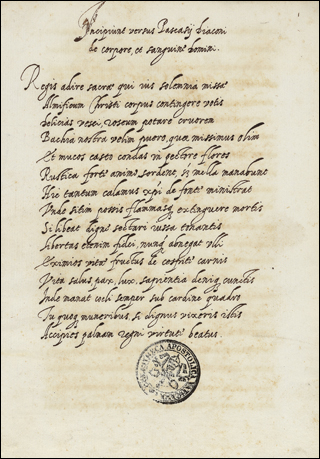 Incipiunt versus Pascasij diaconi
de corpore, et sanguine domini.
Regis adire sacrae qui vis solemnia missae
Almificum Christi corpus contingere votis
Delicias vesci, roseum potare cruorem
Bachia nostra velim puero, quae missimus olim
Et mucos caseo condas in pectore flores
Rustica forte animo sordent, si mella manabunt
Hic tantum calamus xp̃i de fonte ministrat
Vnde sitim possis flammasq; extinguere mortis
Si libeat digne sectari iussa tonantis
libertas etenim fidei, nunq̃ donegat illi
Eximios vitae fructus
carnis
Vita salus, pax, lux, sapientia deniq; cunctis
Inde manat coeli semper sub cardine quadro
Tu quoq; muneribus, si dignus vixeris istis
Accipies palmam regni virtute beatus.
BIBLIOTECA APOSTOLICA VATICANA